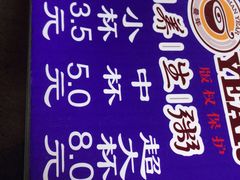 YEA
版权保护
养生粥
小杯 3.5元
中杯 5.0元
超大杯 8.0元